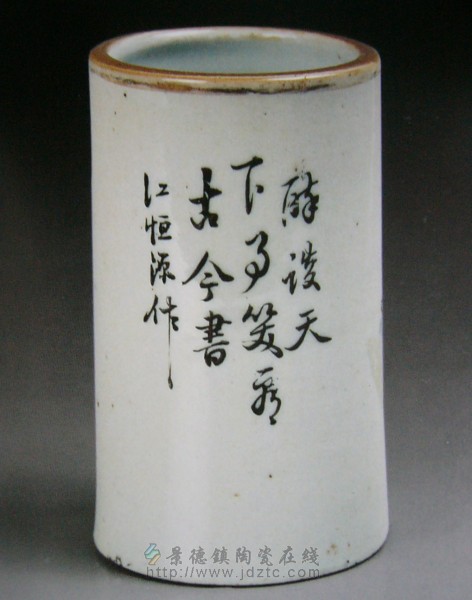 醉谈天
下事笑看
古今書
江恒源作
景德鎮陶瓷在线
http://www.jdztc.com